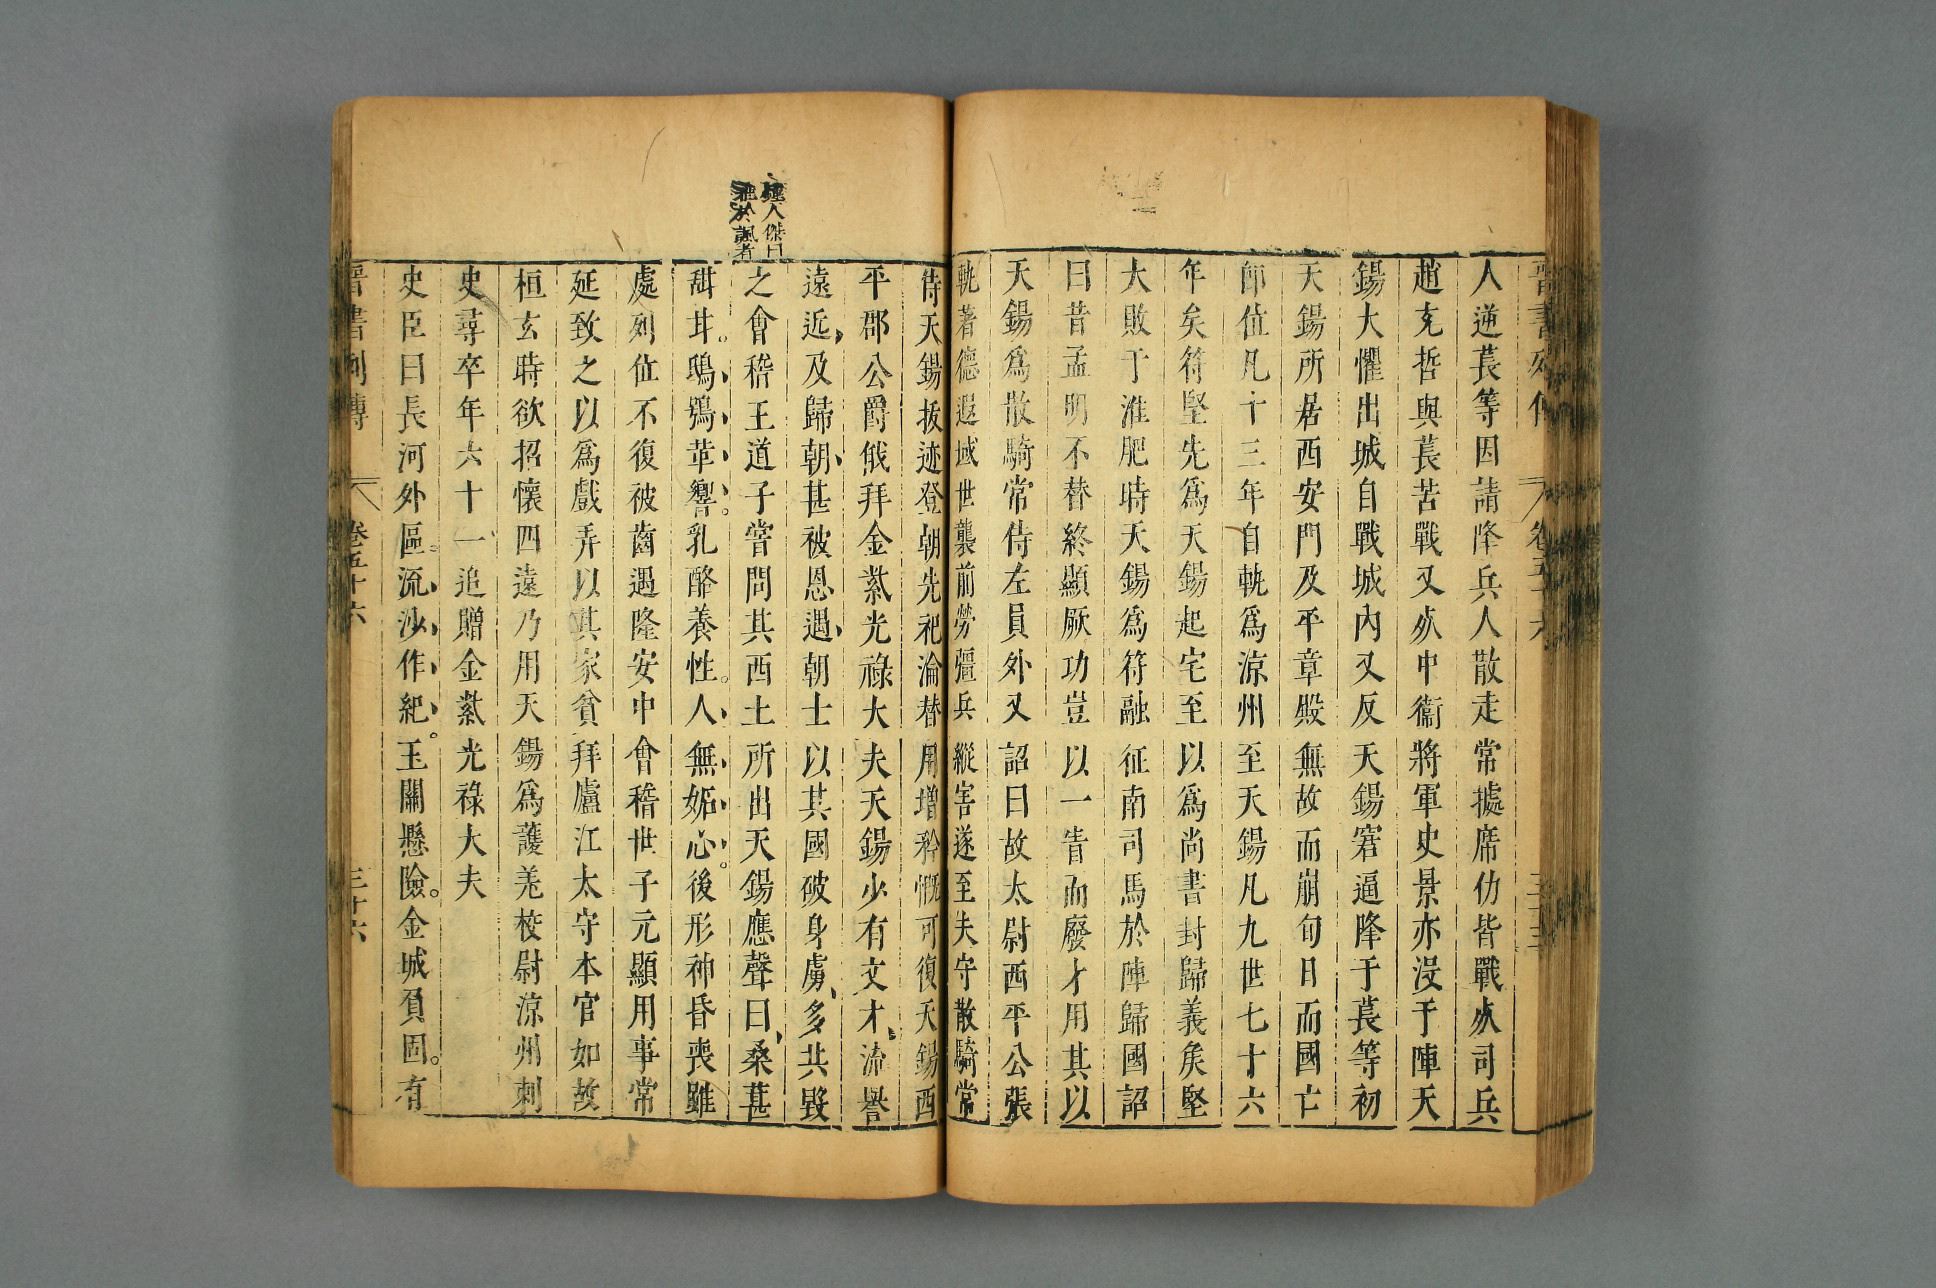 人逆萇等因請降兵人散走常據席仂皆戰死司兵
趙充哲與萇苦戰又死中衞將軍史景亦沒于陣天
錫大懼出城自戰城内又反天錫窘逼降于萇等初
天錫所居西安門及平章殿無故而崩旬日而國亡
即位凡十三年自軌爲涼州至天錫凡九世七十六
年矣符堅先爲天錫起宅至以爲尚書封歸義矦堅
大敗于淮肥時天錫爲符融征南司馬於陣歸國詔
曰昔孟明不替終顯厥功豈以一眚而廢才用其以
天錫爲散騎常侍左員外又詔曰故太尉西平公張
軌著德遐域世襲前勞彊兵縱害遂至失守散騎常
侍天錫拔迹登朝先祀淪替用增矜慨可復天錫西
平郡公爵俄拜金紫光祿大夫天錫少有文才流譽
遠近及歸朝甚被恩遇朝士以其國破身虜多共毀
之會稽王道子嘗問其西土所出天錫應聲曰桑葚
甜甘鴟鴞革響乳酪養性人無妬心後形神昏喪雖
處列位不復被齒遇隆安中會稽世子元顯用事常
延致之以爲戲弄以其家貧拜廬江太守本官如故
桓玄時欲招懷四遠乃用天錫爲護羌校尉涼州刺
史尋卒年六十一追贈金紫光祿大夫
史臣曰長河外區流沙作紀玉關懸險金城負固有
晉書列傳 卷五十六 三十六